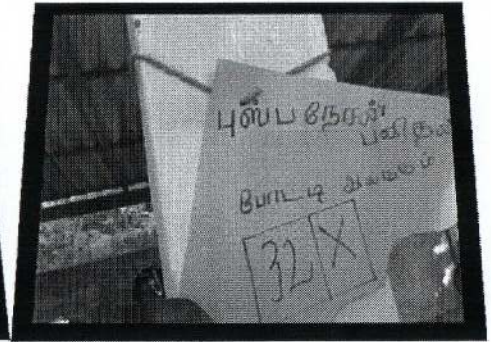 புஸ்பநேசன்
பவிதன்
போட்டி இலக்கம்
32 X